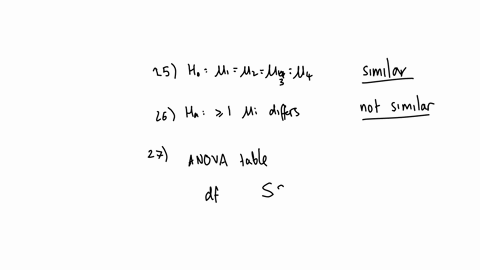 25) H₀ : μ₁ = μ₂ = μ₃ : μ₄ similar
26) Hₐ : ≥ 1 μi differs not similar
27) ANOVA table
df S